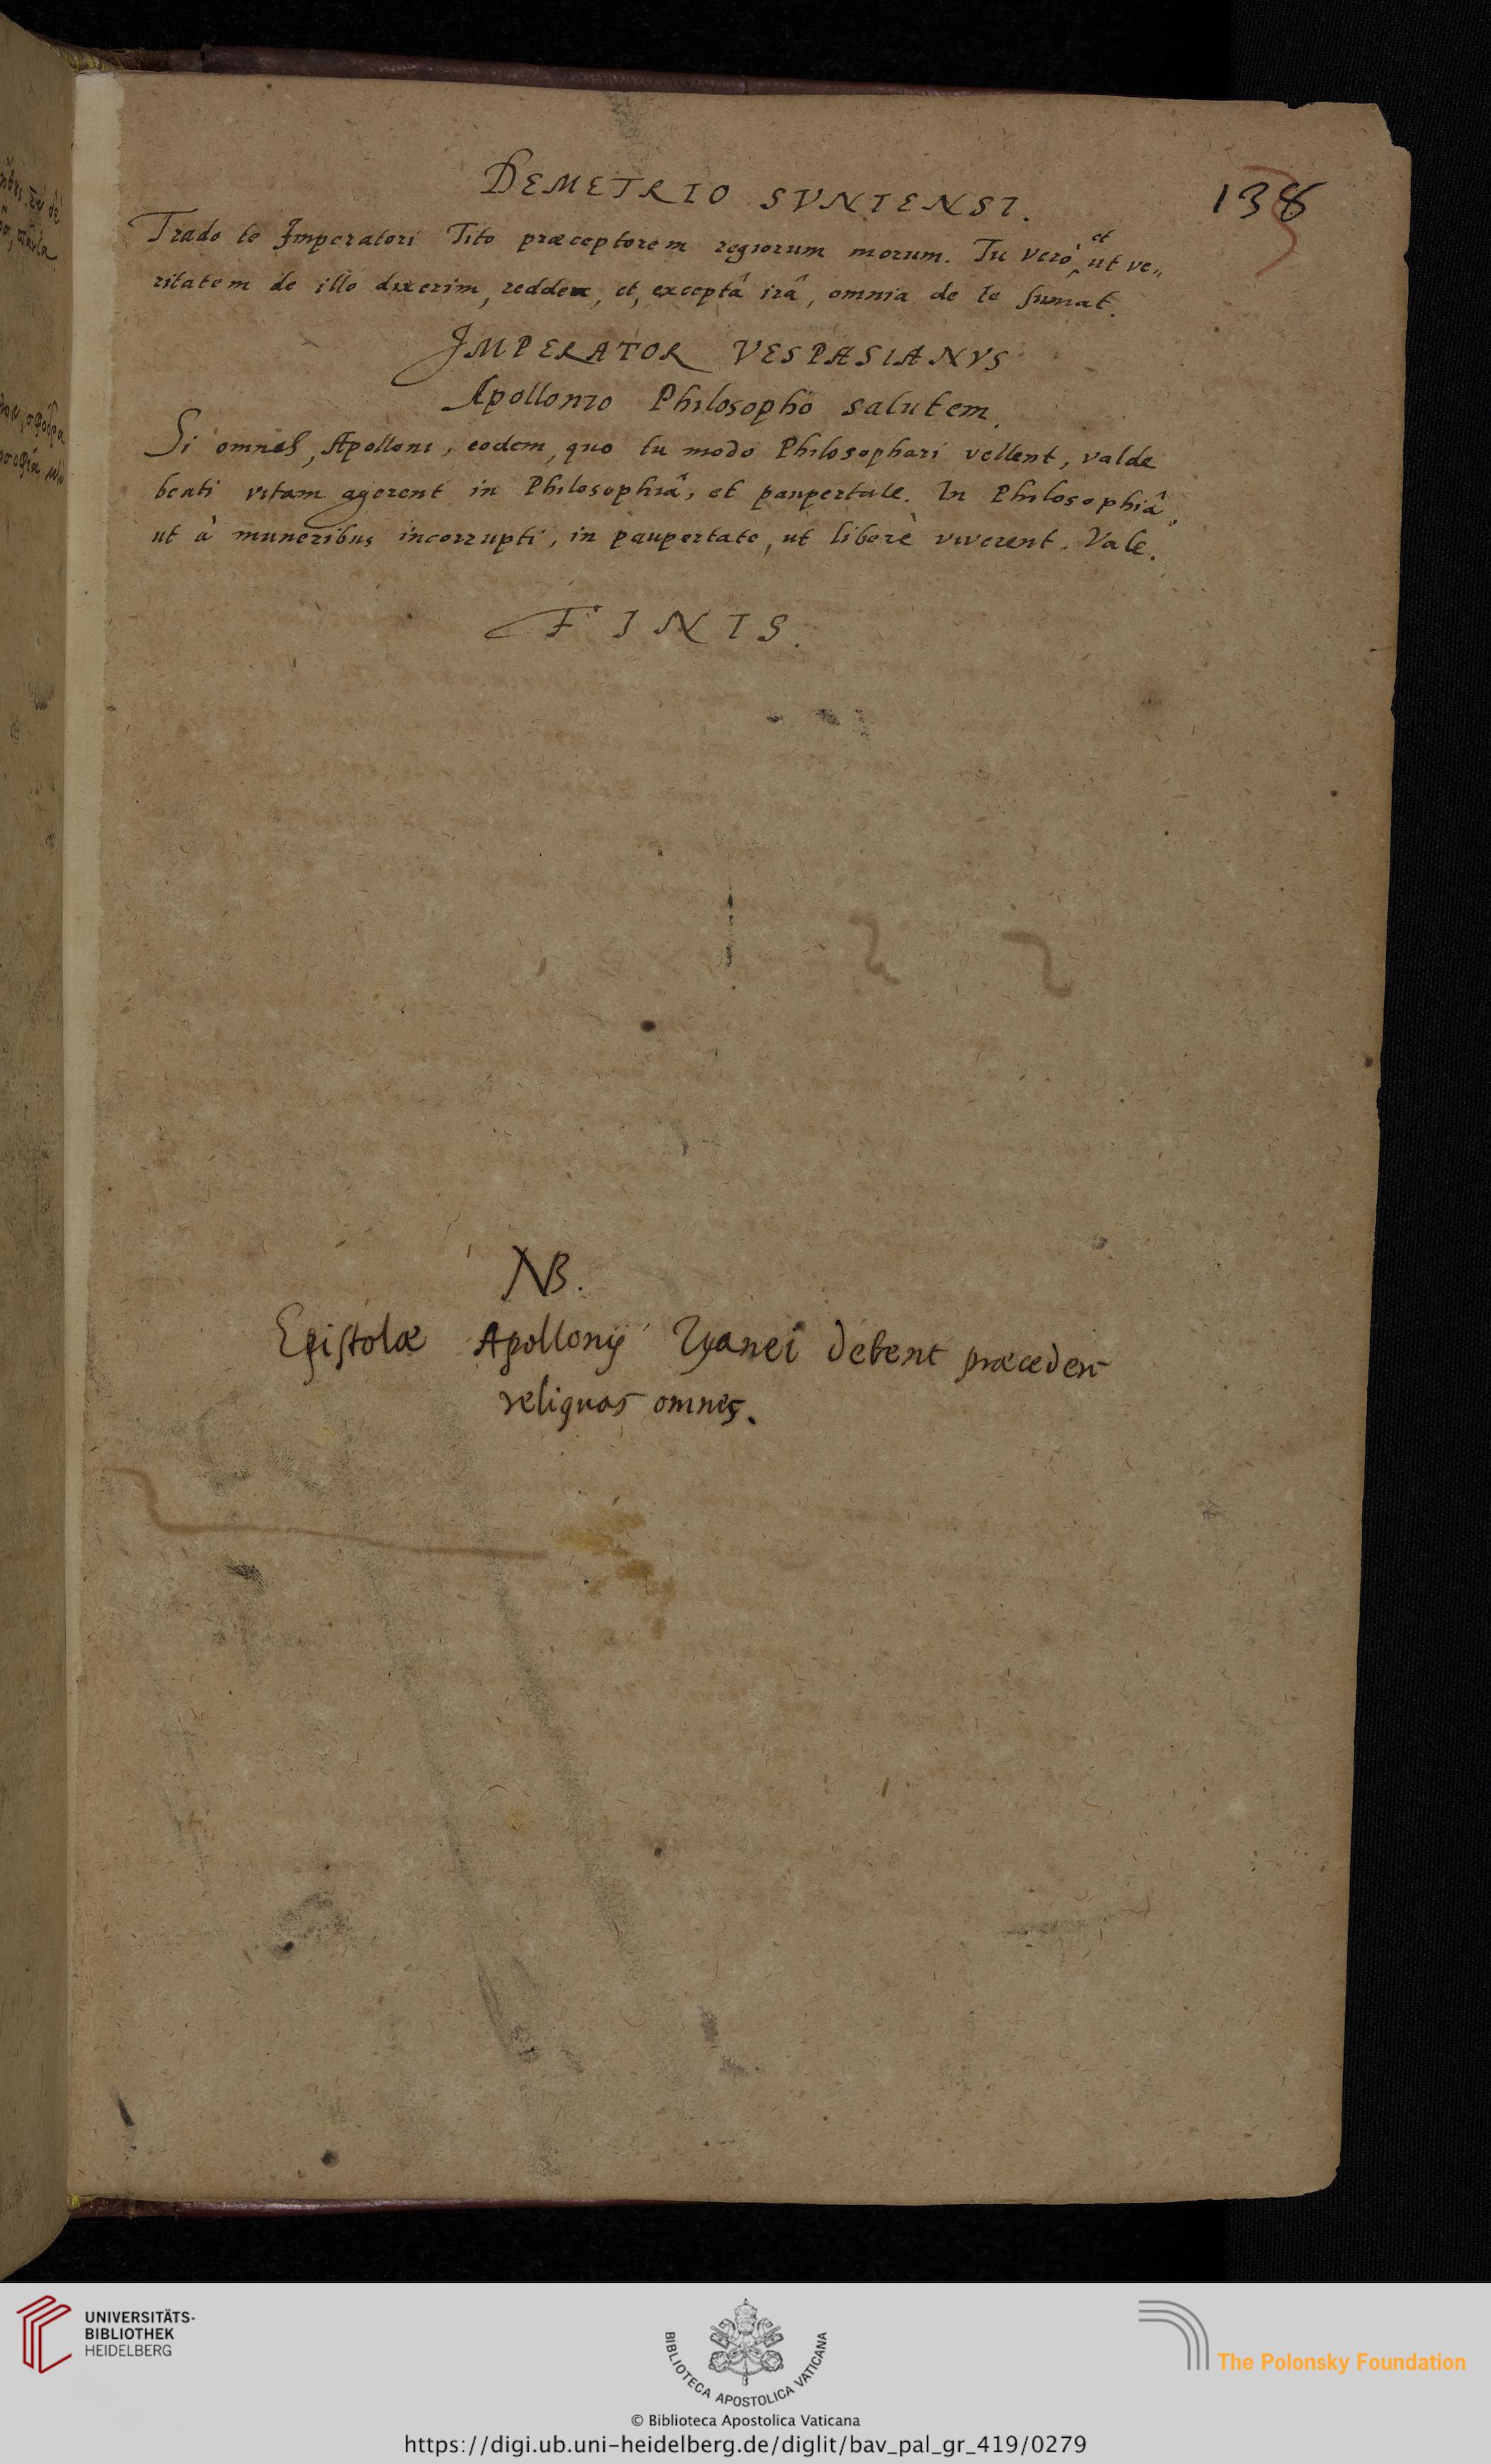 138
DEMETRIO SVNIENSI.
Trado te Imperatori Tito præceptorem regiorum morum. Tu verò et ut ve„
ritatem de illo dixerim, redde, et, exceptâ irâ, omnia de te sumat.
IMPERATOR VESPASIANVS
Apollonio Philosopho salutem.
Si omnes, Apolloni, eodem, quo tu modo Philosophari vellent, valde
beati vitam agerent in Philosophiâ, et paupertate. In Philosophiâ,
ut à muneribus incorrupti, in paupertate, ut liberè viverent. Vale.
FINIS.
NB.
Epistolæ Apollonij Tyanei debent præcedere
reliquas omnes.
UNIVERSITÄTS-
BIBLIOTHEK
HEIDELBERG
BIBLIOTECA APOSTOLICA VATICANA
The Polonsky Foundation
© Biblioteca Apostolica Vaticana
https://digi.ub.uni-heidelberg.de/diglit/bav_pal_gr_419/0279